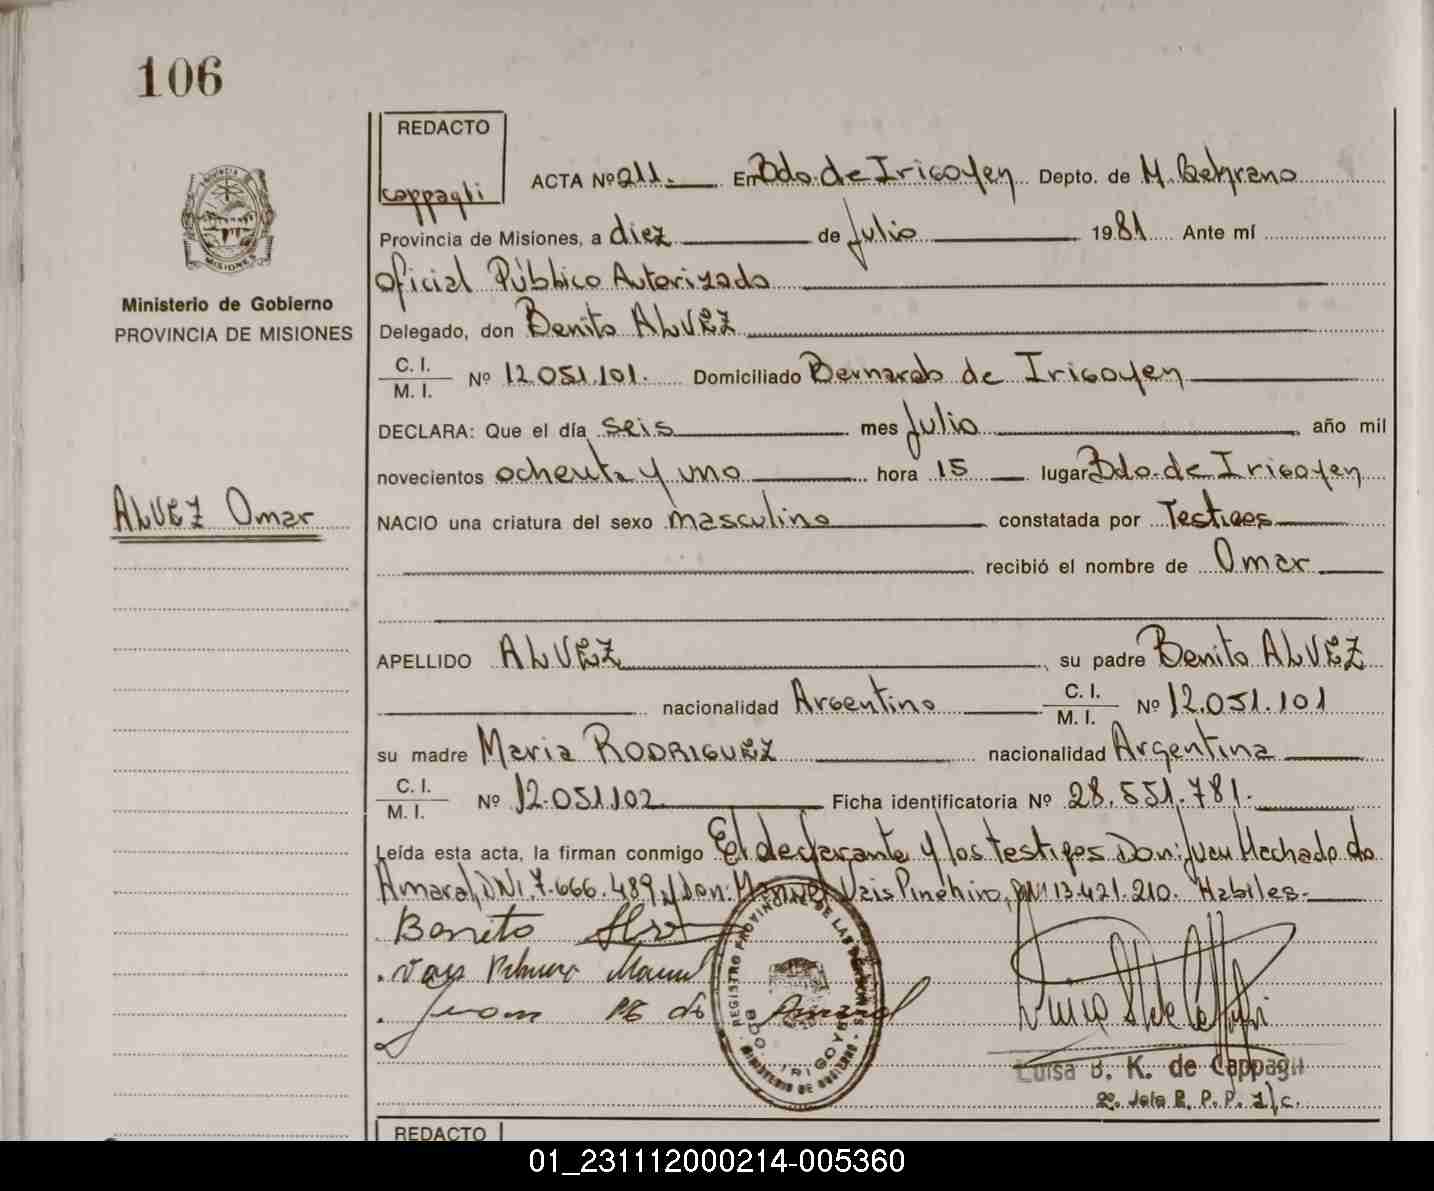 106
REDACTO
cappagli
ACTA Nº 211. En Bdo de Irigoyen Depto. de M. Belgrano
Provincia de Misiones, a diez de Julio 1981 Ante mí
Oficial Público Autorizado
Ministerio de Gobierno
PROVINCIA DE MISIONES
Delegado, don Benito ALVEZ
C. I.
M. I. Nº 12.051.101. Domiciliado Bernardo de Irigoyen
DECLARA: Que el día seis mes Julio año mil
novecientos ochenta y uno hora 15 lugar Bdo. de Irigoyen
ALVEZ Omar
NACIO una criatura del sexo masculino constatada por Testigos
recibió el nombre de Omar
APELLIDO ALVEZ, su padre Benito ALVEZ
nacionalidad Argentino C. I.
M. I. Nº 12.051.101
su madre Maria RODRIGUEZ nacionalidad Argentina
C. I.
M. I. Nº 12.051.102 Ficha identificatoria Nº 28.551.781.
Leída esta acta, la firman conmigo El declarante y los testigos Don: Juan Machado do
Amaral, DNI. 7.666.489 y Don: Manuel Vais Pinehiro, DNI 13.421.210. Habiles.
Benito
Manuel
Juan do Amaral
REGISTRO PROVINCIAL DE LAS PERSONAS
BDO. IRIGOYEN
MINISTERIO DE GOBIERNO
Luisa B. K. de Cappagli
2º. Jefe R. P. P. a/c.
REDACTO
01_231112000214-005360